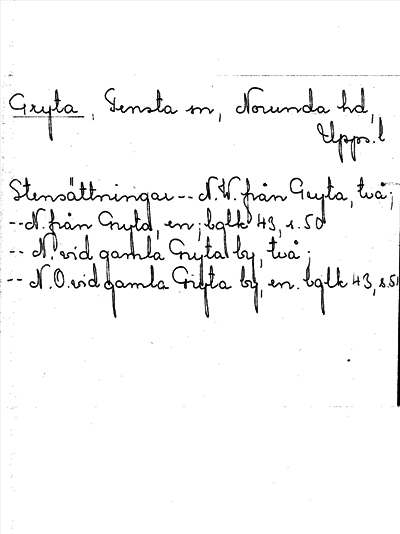 Gryta, Tensta sn, Norunda hd,
Upps. l
Stensättningar -- N.W. från Gryta, två;
-- N. från Gryta, en; bglk 43, s. 50
-- N. vid gamla Gryta by, två;
-- N.O. vid gamla Gryta by, en. bglk 43, s. 51